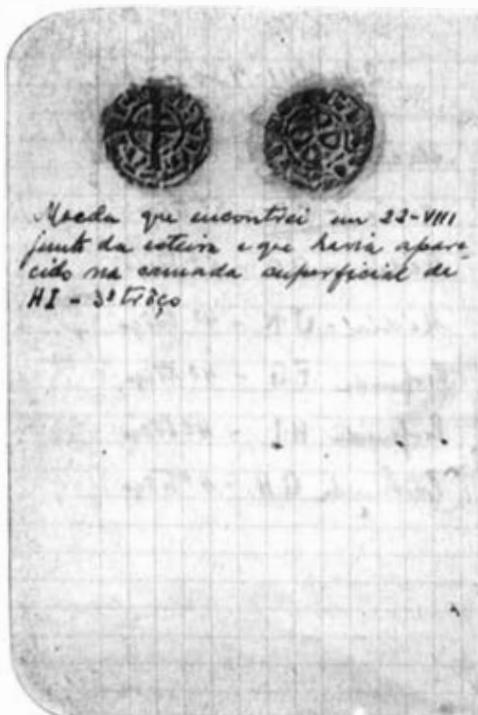 Moeda que encontrei em 22-VIII
junto da esteira e que havia apare-
cido na camada superficial de
HI - 3º trôço